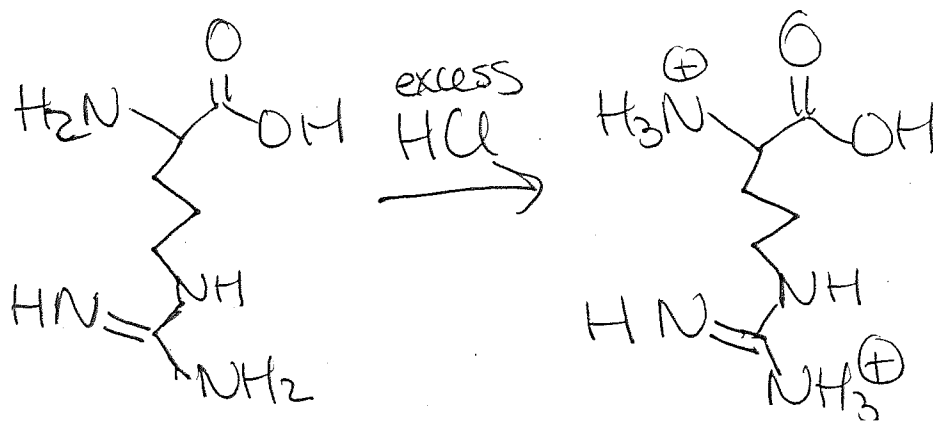 O
H₂N
OH
NH
HN
NH₂
excess
HCl
⊕
O
H₃N
OH
NH
HN
NH₃⊕